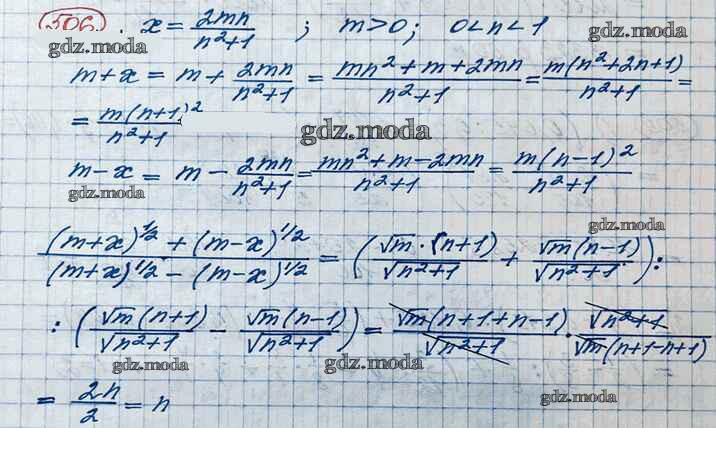 506. x = 2mn/(n²+1) ; m>0; 0<n<1
gdz.moda gdz.moda
m+x = m + 2mn/(n²+1) = (mn²+m+2mn)/(n²+1) = m(n²+2n+1)/(n²+1) =
= m(n+1)²/(n²+1)
gdz.moda
m-x = m - 2mn/(n²+1) = (mn²+m-2mn)/(n²+1) = m(n-1)²/(n²+1)
gdz.moda
gdz.moda
((m+x)^1/2 + (m-x)^1/2)/((m+x)^1/2 - (m-x)^1/2) = (√m·(n+1)/√(n²+1) + √m(n-1)/√(n²+1)) :
: (√m(n+1)/√(n²+1) - √m(n-1)/√(n²+1)) = √m(n+1+n-1)/√(n²+1) · √(n²+1)/(√m(n+1-n+1))
gdz.moda gdz.moda
= 2n/2 = n
gdz.moda